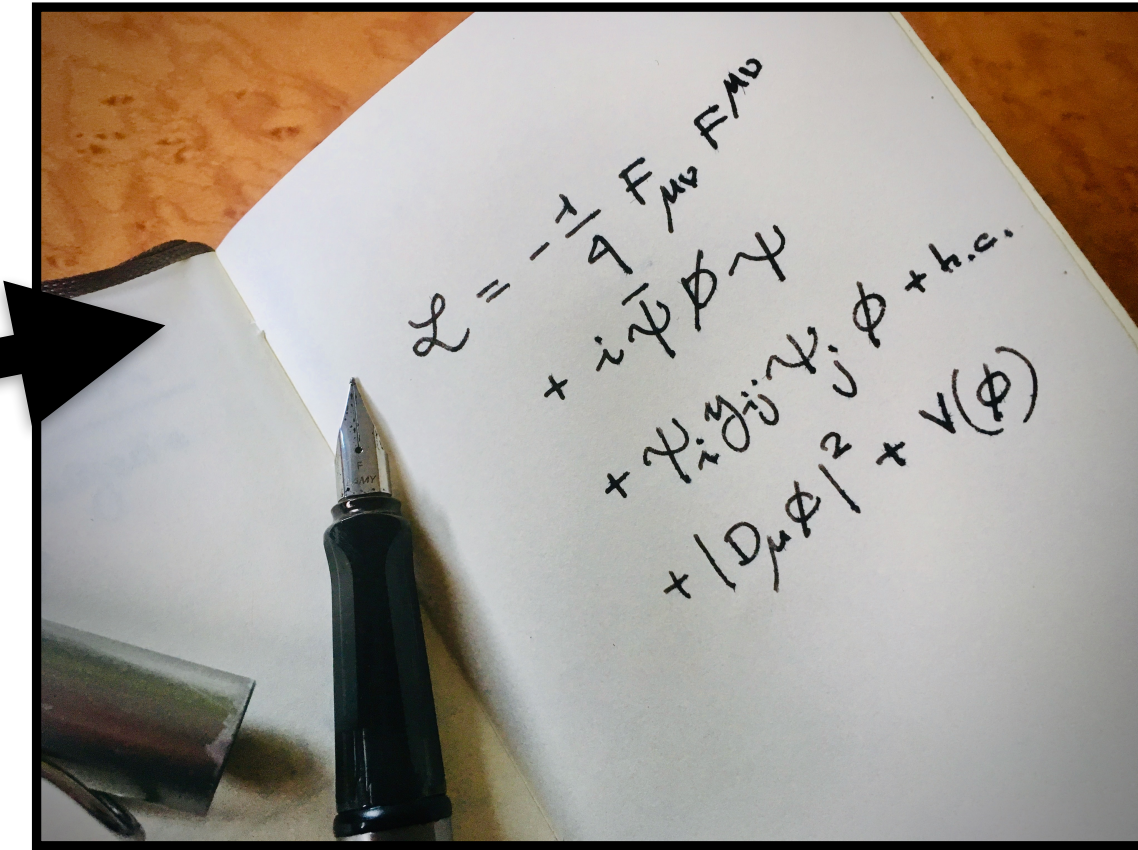 ℒ = -1/4 F_μν F^μν
+ i ψ̄ D̸ ψ
+ ψ_i y_ij ψ_j ϕ + h.c.
+ |D_μ ϕ|² + V(ϕ)
F